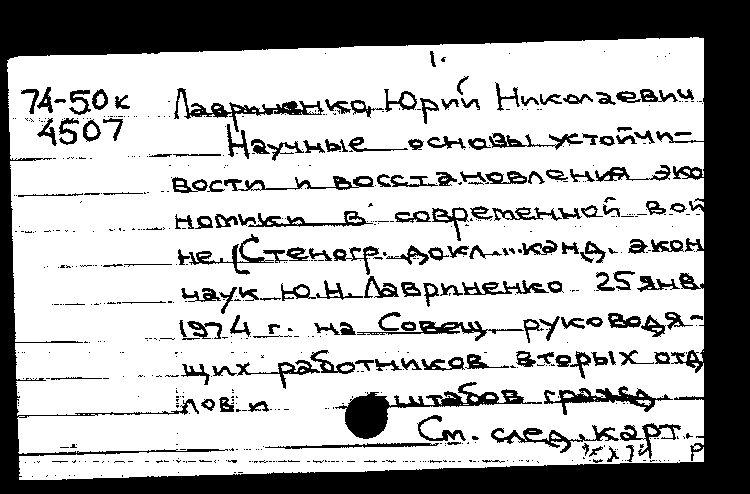 1.
74-50к Лавриненко, Юрий Николаевич
4507 Научные основы устойчи-
вости и восстановления эко
номики в современной вой
не. [Стеногр. докл... канд. экон
наук Ю.Н. Лавриненко 25 янв.
1974 г. на Совещ. руководя-
щих работников вторых отд
лов и штабов гражд.
См. след. карт.